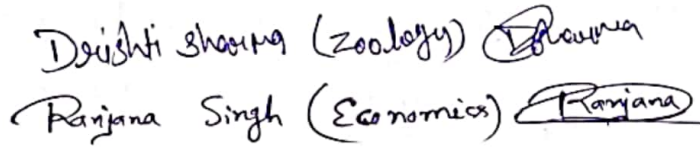 Drishti Sharma (Zoology) DSharma
Ranjana Singh (Economics) Ranjana